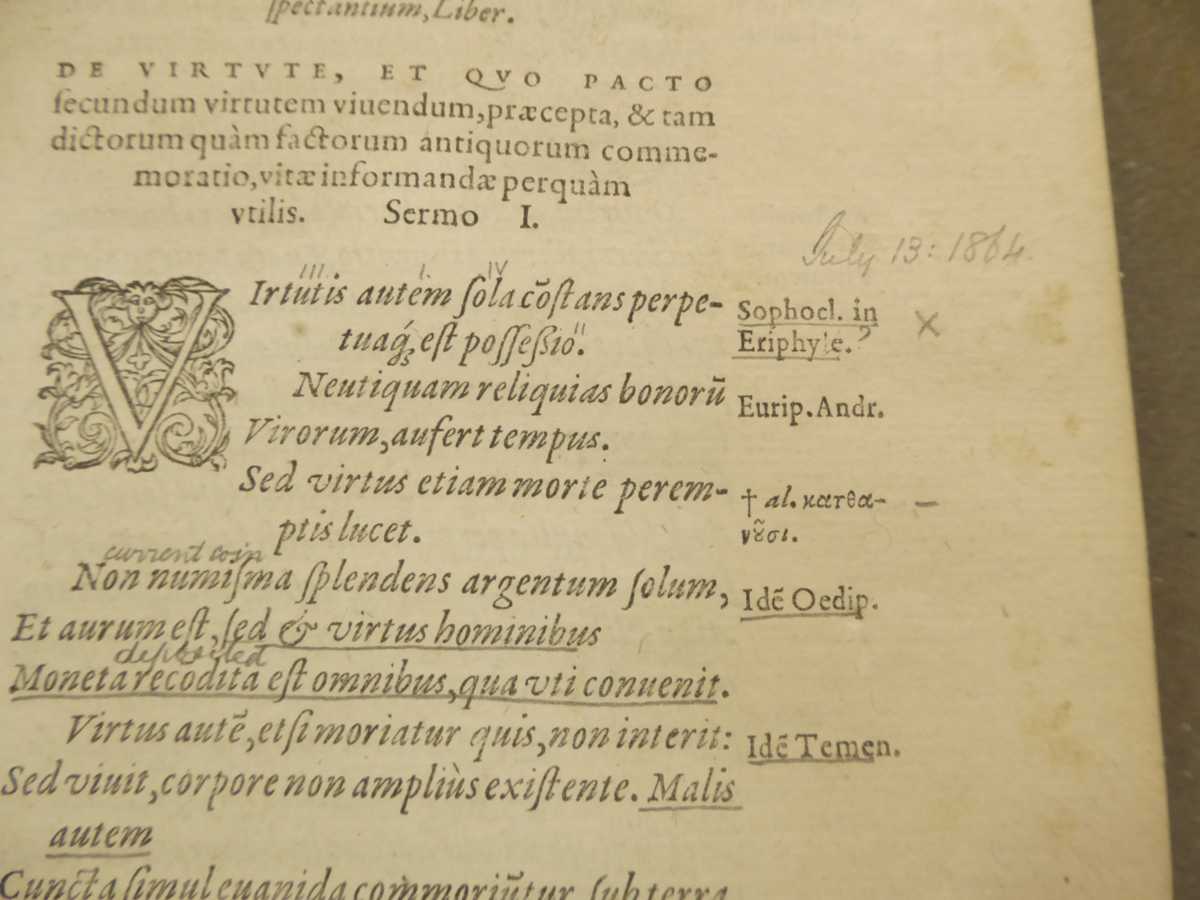 spectantium, Liber.
DE VIRTVTE, ET QVO PACTO
secundum virtutem viuendum, præcepta, & tam
dictorum quàm factorum antiquorum comme-
moratio, vitæ informandæ perquàm
vtilis. Sermo I.
July 13: 1864.
III I. IV
VIrtutis autem sola cõstans perpe-
tuaq́; est possessio. II
Sophocl. in ×
Eriphyle. ?
Neutiquam reliquias bonorũ
Eurip. Andr.
Virorum, aufert tempus.
Sed virtus etiam morte perem-
ptis lucet.
† al. κατθα- –
νȣ͂σι.
current coin
Non numisma splendens argentum solum,
Idẽ Oedip.
Et aurum est, sed & virtus hominibus
deposited
Moneta recodita est omnibus, qua vti conuenit.
Virtus autẽ, etsi moriatur quis, non interit:
Idẽ Temen.
Sed viuit, corpore non ampliùs existente. Malis
autem
Cuncta simul euanida commoriũtur sub terra